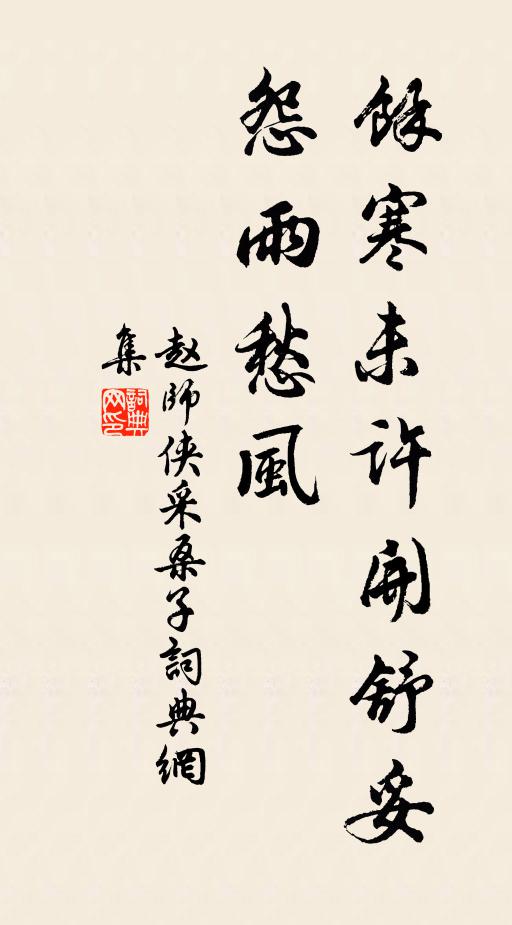 餘寒未許開舒妥
怨雨愁風
赵師侠采桑子詞典網
集
詞典
网印